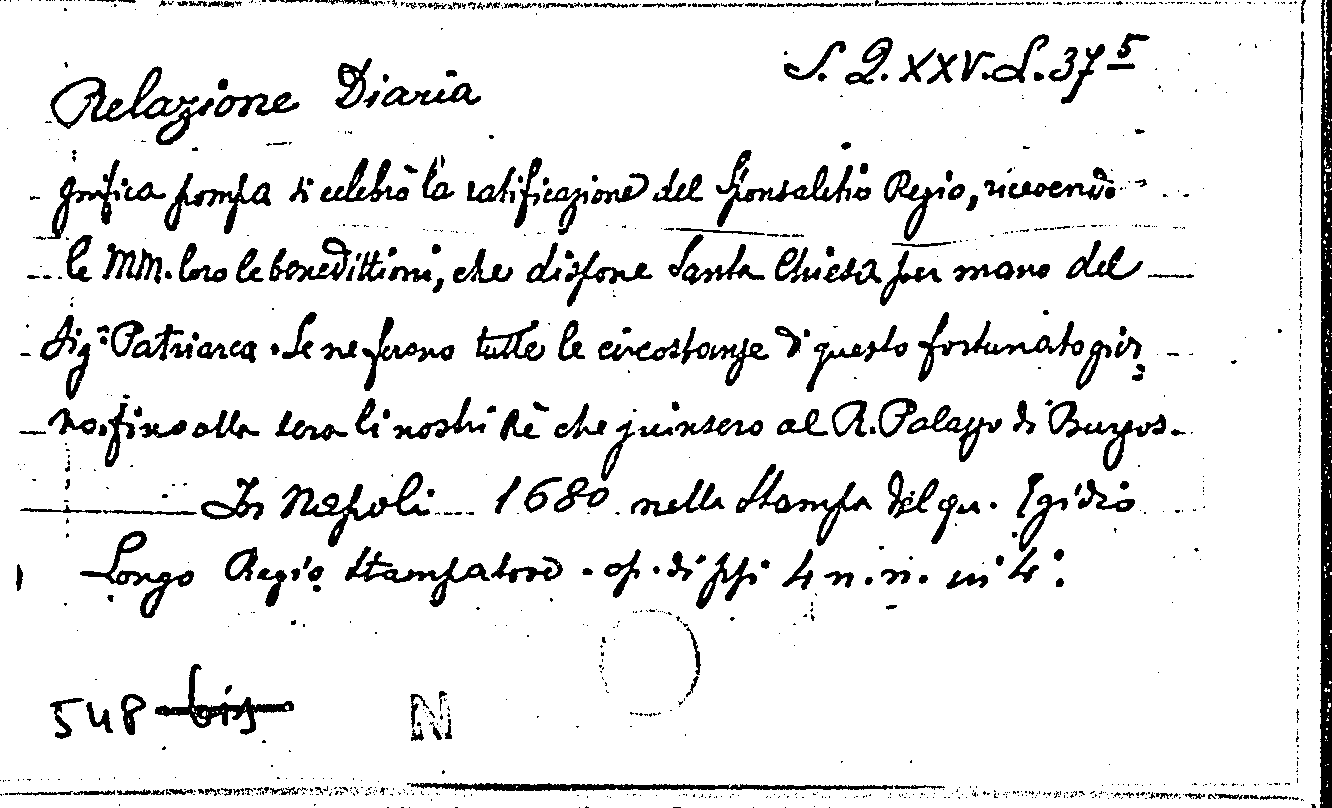 S. Q. XXV. L. 37 5
Relazione Diaria
gnifica pompa si celebrò la ratificazione del Sponsalitio Regio, ricevendo
le MM. loro le benedittioni, che dispone Santa Chiesa per mano del
Sig.r Patriarca. Se ne ferono tutte le circostanze di questo fortunato gior,
no, fino alla sera li nostri Rè che giunsero al R. Palazzo di Burgos.
In Napoli 1680 nella Stampa del qu. Egidio
Longo Regio Stampatore. op. di ppi 4 n.n. in 4°.
548 bis
N